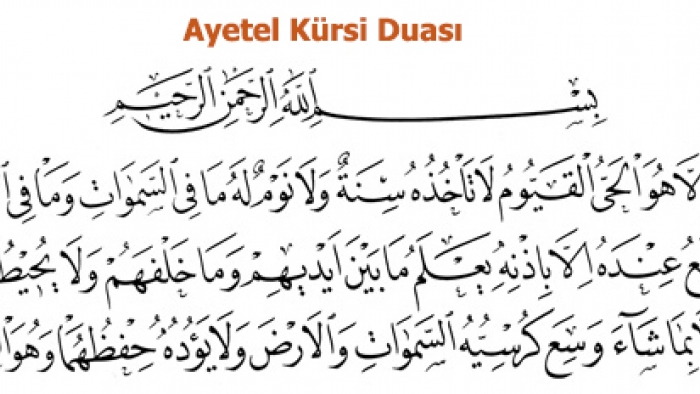 Ayetel Kürsi Duası
بِسْمِ اللّٰهِ الرَّحْمٰنِ الرَّحٖيمِ
هُوَ الْحَىُّ الْقَيُّومُ لَا تَاْخُذُهُ سِنَةٌ وَلَا نَوْمٌ لَهُ مَا فِى السَّمٰوَاتِ وَمَا فِى
عِنْدَهُ اِلَّا بِاِذْنِهٖ يَعْلَمُ مَا بَيْنَ اَيْدٖيهِمْ وَمَا خَلْفَهُمْ وَلَا
بِمَا شَٓاءَ وَسِعَ كُرْسِيُّهُ السَّمٰوَاتِ وَالْاَرْضَ وَلَا يَؤُدُهُ حِفْظُهُمَا وَهُوَ